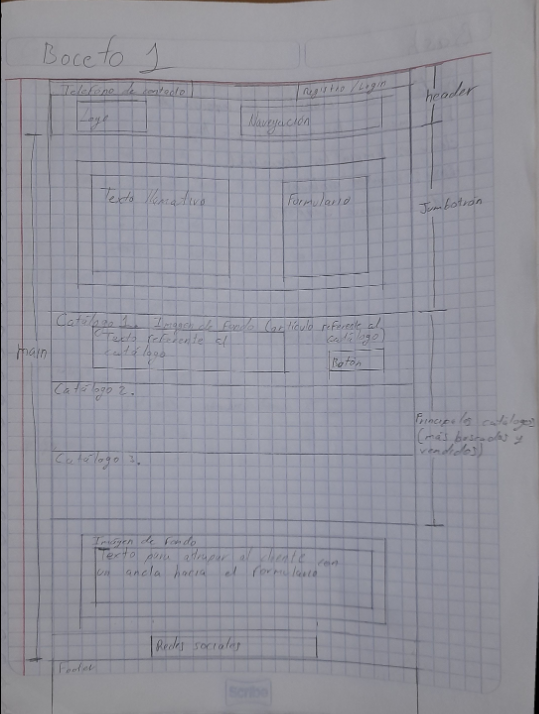 Boceto 1
Teléfono de contacto
Registro / Login
header
Logo
Navegación
Texto llamativo
Formulario
Jumbotrón
Catálogo 1. Imagen de fondo (artículo referente al catálogo)
Texto referente al
catálogo
Botón
main
Catálogo 2.
Catálogo 3.
Principales catálogos
(más buscados y
vendidos)
Imagen de fondo
Texto para atrapar al cliente con
un ancla hacia el formulario
Redes sociales
Footer
Scribe